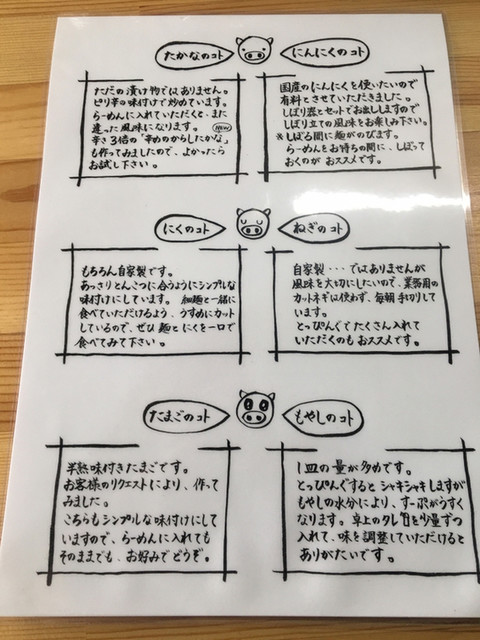 たかなのコト
ただの漬け物ではありません。
ピリ辛の味付けで炒めています。
らーめんに入れていただくと、また
違った風味になります。 NEW
辛さ3倍の「辛めのからしたかな」
も作ってみましたので、よかったら
お試し下さい。
にんにくのコト
国産のにんにくを使いたいので
有料とさせていただきました。
しぼり器とセットでお出ししますので
しぼり立ての風味をお楽しみ下さい。
※しぼる間に麺がのびます。
らーめんをお待ちの間に、しぼって
おくのがおススメです。
にくのコト
もちろん自家製です。
あっさりとんこつに合うようにシンプルな
味付けにしています。細麺と一緒に
食べていただけるよう、うすめにカット
しているので、ぜひ麺とにくを一口で
食べてみて下さい。
ねぎのコト
自家製・・・ではありませんが
風味を大切にしたいので、業務用の
カットネギは使わず、毎朝手切りして
います。
とっぴんぐでたくさん入れて
いただくのもおススメです。
たまごのコト
半熟味付きたまごです。
お客様のリクエストにより、作って
みました。
こちらもシンプルな味付けにして
いますので、らーめんに入れても
そのままでも、お好みでどうぞ。
もやしのコト
1皿の量が多めです。
とっぴんぐするとシャキシャキしますが
もやしの水分により、すーぷがうすく
なります。卓上のタレを少量ずつ
入れて、味を調整していただけると
ありがたいです。